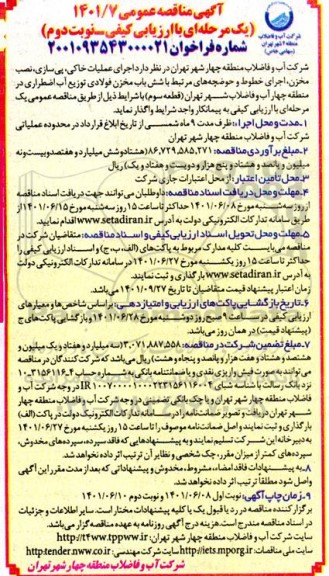 شرکت آب و فاضلاب
منطقه ۴ شهر تهران
(سهامی خاص)
آگهی مناقصه عمومی ۱۴۰۱/۷
(یک مرحله‌ای با ارزیابی کیفی_نوبت دوم)
شماره فراخوان ۲۰۰۱۰۹۳۵۴۳۰۰۰۰۲۱
شرکت آب و فاضلاب منطقه چهار شهر تهران در نظر دارد اجرای عملیات خاکی، پی‌سازی، نصب
مخزن، اجرای خطوط و حوضچه‌های مرتبط با شش باب مخزن فولادی توزیع آب اضطراری در
منطقه چهار آب و فاضلاب شهر تهران (قطعه سوم) با شرایط ذیل از طریق مناقصه عمومی یک
مرحله‌ای با ارزیابی کیفی به پیمانکار واجد شرایط واگذار نماید.
۱_مدت و محل اجرا: ظرف مدت ۹ ماه شمسی از تاریخ ابلاغ قرارداد در محدوده عملیاتی
شرکت آب و فاضلاب منطقه چهار شهر تهران
۲_مبلغ برآوردی مناقصه: ۸۶,۷۲۹,۵۸۵,۲۷۱ (هشتادوشش میلیارد و هفتصدوبیست‌ونه
میلیون و پانصد و هشتاد و پنج هزار و دویست و هفتاد و یک) ریال
۳_محل تأمین اعتبار: از محل اعتبارات جاری شرکت
۴_مهلت و محل دریافت اسناد مناقصه: داوطلبان می‌توانند جهت دریافت اسناد مناقصه
از روز سه‌شنبه مورخ ۱۴۰۱/۰۶/۰۸ حداکثر تا ساعت ۱۵ روز سه‌شنبه مورخ ۱۴۰۱/۰۶/۱۵ از
طریق سامانه تدارکات الکترونیکی دولت به آدرس www.setadiran.ir اقدام نمایند.
۵_مهلت و محل تحویل اسناد ارزیابی کیفی و اسناد مناقصه: متقاضیان شرکت در
مناقصه می‌بایست کلیه مدارک مربوط به پاکت‌های (الف، ب، ج) و اسناد ارزیابی کیفی را
حداکثر تا ساعت ۱۵ روز یکشنبه مورخ ۱۴۰۱/۰۶/۲۷ در سامانه تدارکات الکترونیکی دولت
به آدرس www.setadiran.ir بارگذاری و ثبت نمایند.
زمان اعتبار پیشنهاد قیمت متقاضیان تا تاریخ ۱۴۰۱/۰۹/۲۷ می‌باشد.
۶_تاریخ بازگشایی پاکت‌های ارزیابی و امتیازدهی: براساس شاخص‌ها و معیارهای
ارزیابی کیفی در ساعت ۹ صبح روز دوشنبه مورخ ۱۴۰۱/۰۶/۲۸ و بازگشایی پاکت‌های ج
(پیشنهاد قیمت) در همان روز می‌باشد.
۷_مبلغ تضمین شرکت در مناقصه: ۳,۰۷۱,۸۸۷,۵۵۸ (سه میلیارد و هفتاد و یک میلیون و
هشتصد و هشتاد و هفت هزار و پانصد و پنجاه و هشت) ریال می‌باشد که شرکت‌کنندگان در مناقصه
می‌توانند به صورت فیش واریزی نقدی و یا ضمانتنامه بانکی به شماره حساب
نزد بانک رسالت با شناسه شبای
در وجه شرکت آب و
فاضلاب منطقه چهار شهر تهران و یا چک بانکی تضمینی در وجه شرکت آب و فاضلاب منطقه چهار
شهر تهران دریافت و تصویر ضمانتنامه را در سامانه تدارکات الکترونیک دولت در پاکت (الف)
بارگذاری و ثبت نمایند و اصل ضمانتنامه موصوف را تا ساعت ۱۵ روز یکشنبه مورخ ۱۴۰۱/۰۶/۲۷
به دبیرخانه این شرکت تسلیم نمایند و به پیشنهادهایی که فاقد سپرده، سپرده‌های مخدوش،
سپرده‌های کمتر از میزان مقرر، چک شخصی و نظایر آن ترتیب اثر داده نخواهد شد.
۸_به پیشنهادات فاقد امضاء، مشروط، مخدوش و پیشنهاداتی که بعد از مدت مقرر این آگهی
واصل شود مطلقاً ترتیب اثر داده نخواهد شد.
۹_زمان چاپ آگهی: نوبت اول ۱۴۰۱/۰۶/۰۸ و نوبت دوم ۱۴۰۱/۰۶/۱۰
برگزارکننده مناقصه در رد یا قبول یک یا کلیه پیشنهادات مختار است. سایر اطلاعات و جزئیات
در اسناد مناقصه مندرج است. هزینه درج آگهی روزنامه به عهده مناقصه‌گزار می‌باشد.
سایت شرکت آب و فاضلاب منطقه چهار شهر تهران: http://t4ww.tppww.ir
سایت ملی مناقصات: http://iets.mporg.ir سایت شرکت مهندسی: http:tender.nww.co.ir
شرکت آب و فاضلاب منطقه چهار شهر تهران